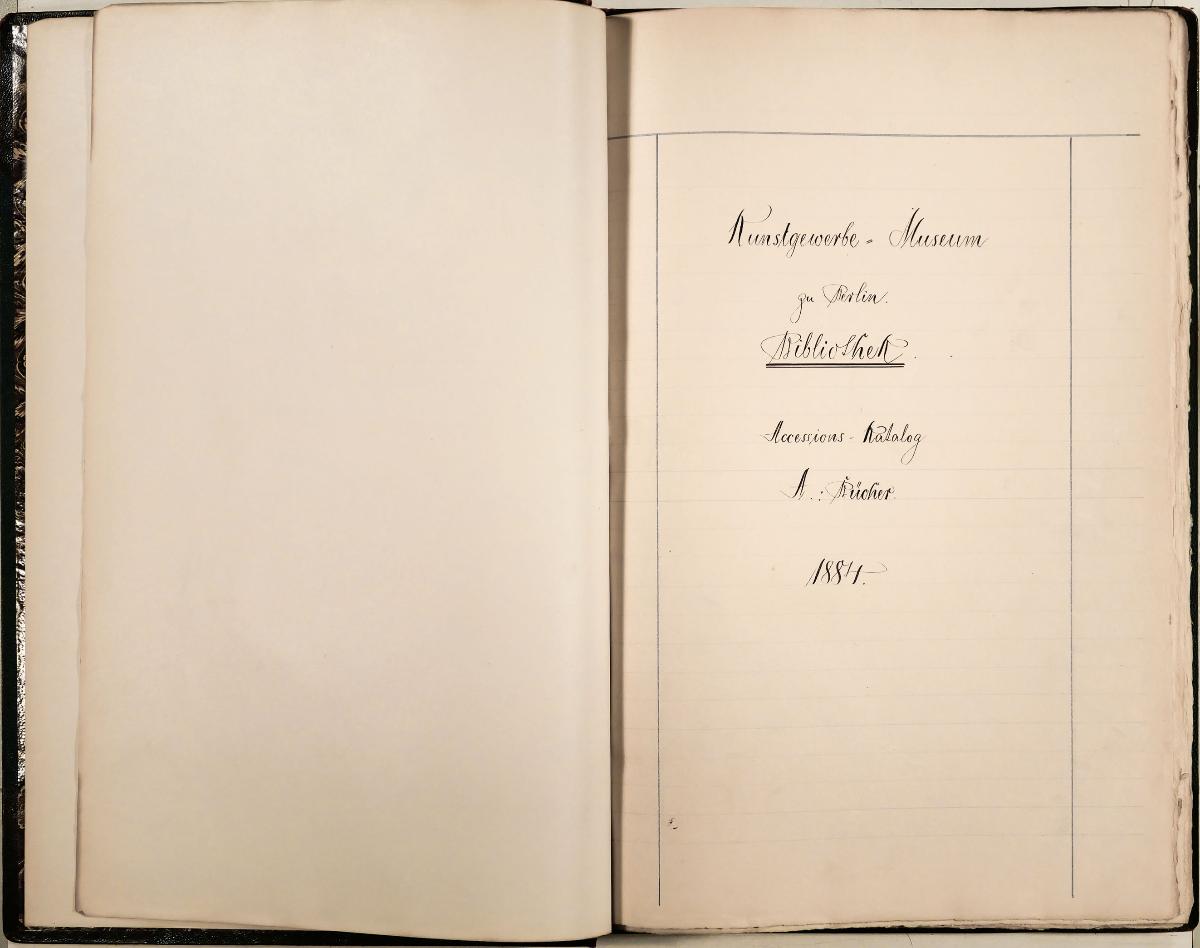 Kunstgewerbe - Museum
zu Berlin.
Bibliothek.
Accessions - Katalog
A.: Bücher.
1884.